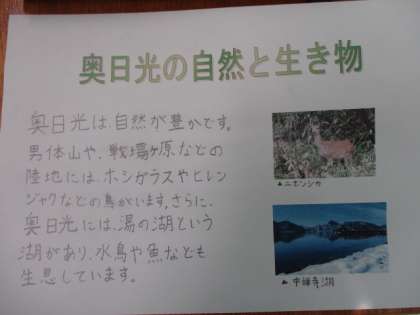 奥日光の自然と生き物
奥日光は、自然が豊かです。
男体山や、戦場ヶ原などの
陸地には、ホシガラスやヒレン
ジャクなどの鳥がいます。さらに、
奥日光には、湯の湖という
湖があり、水鳥や魚なども
生息しています。
▲ニホンジカ
▲中禅寺湖